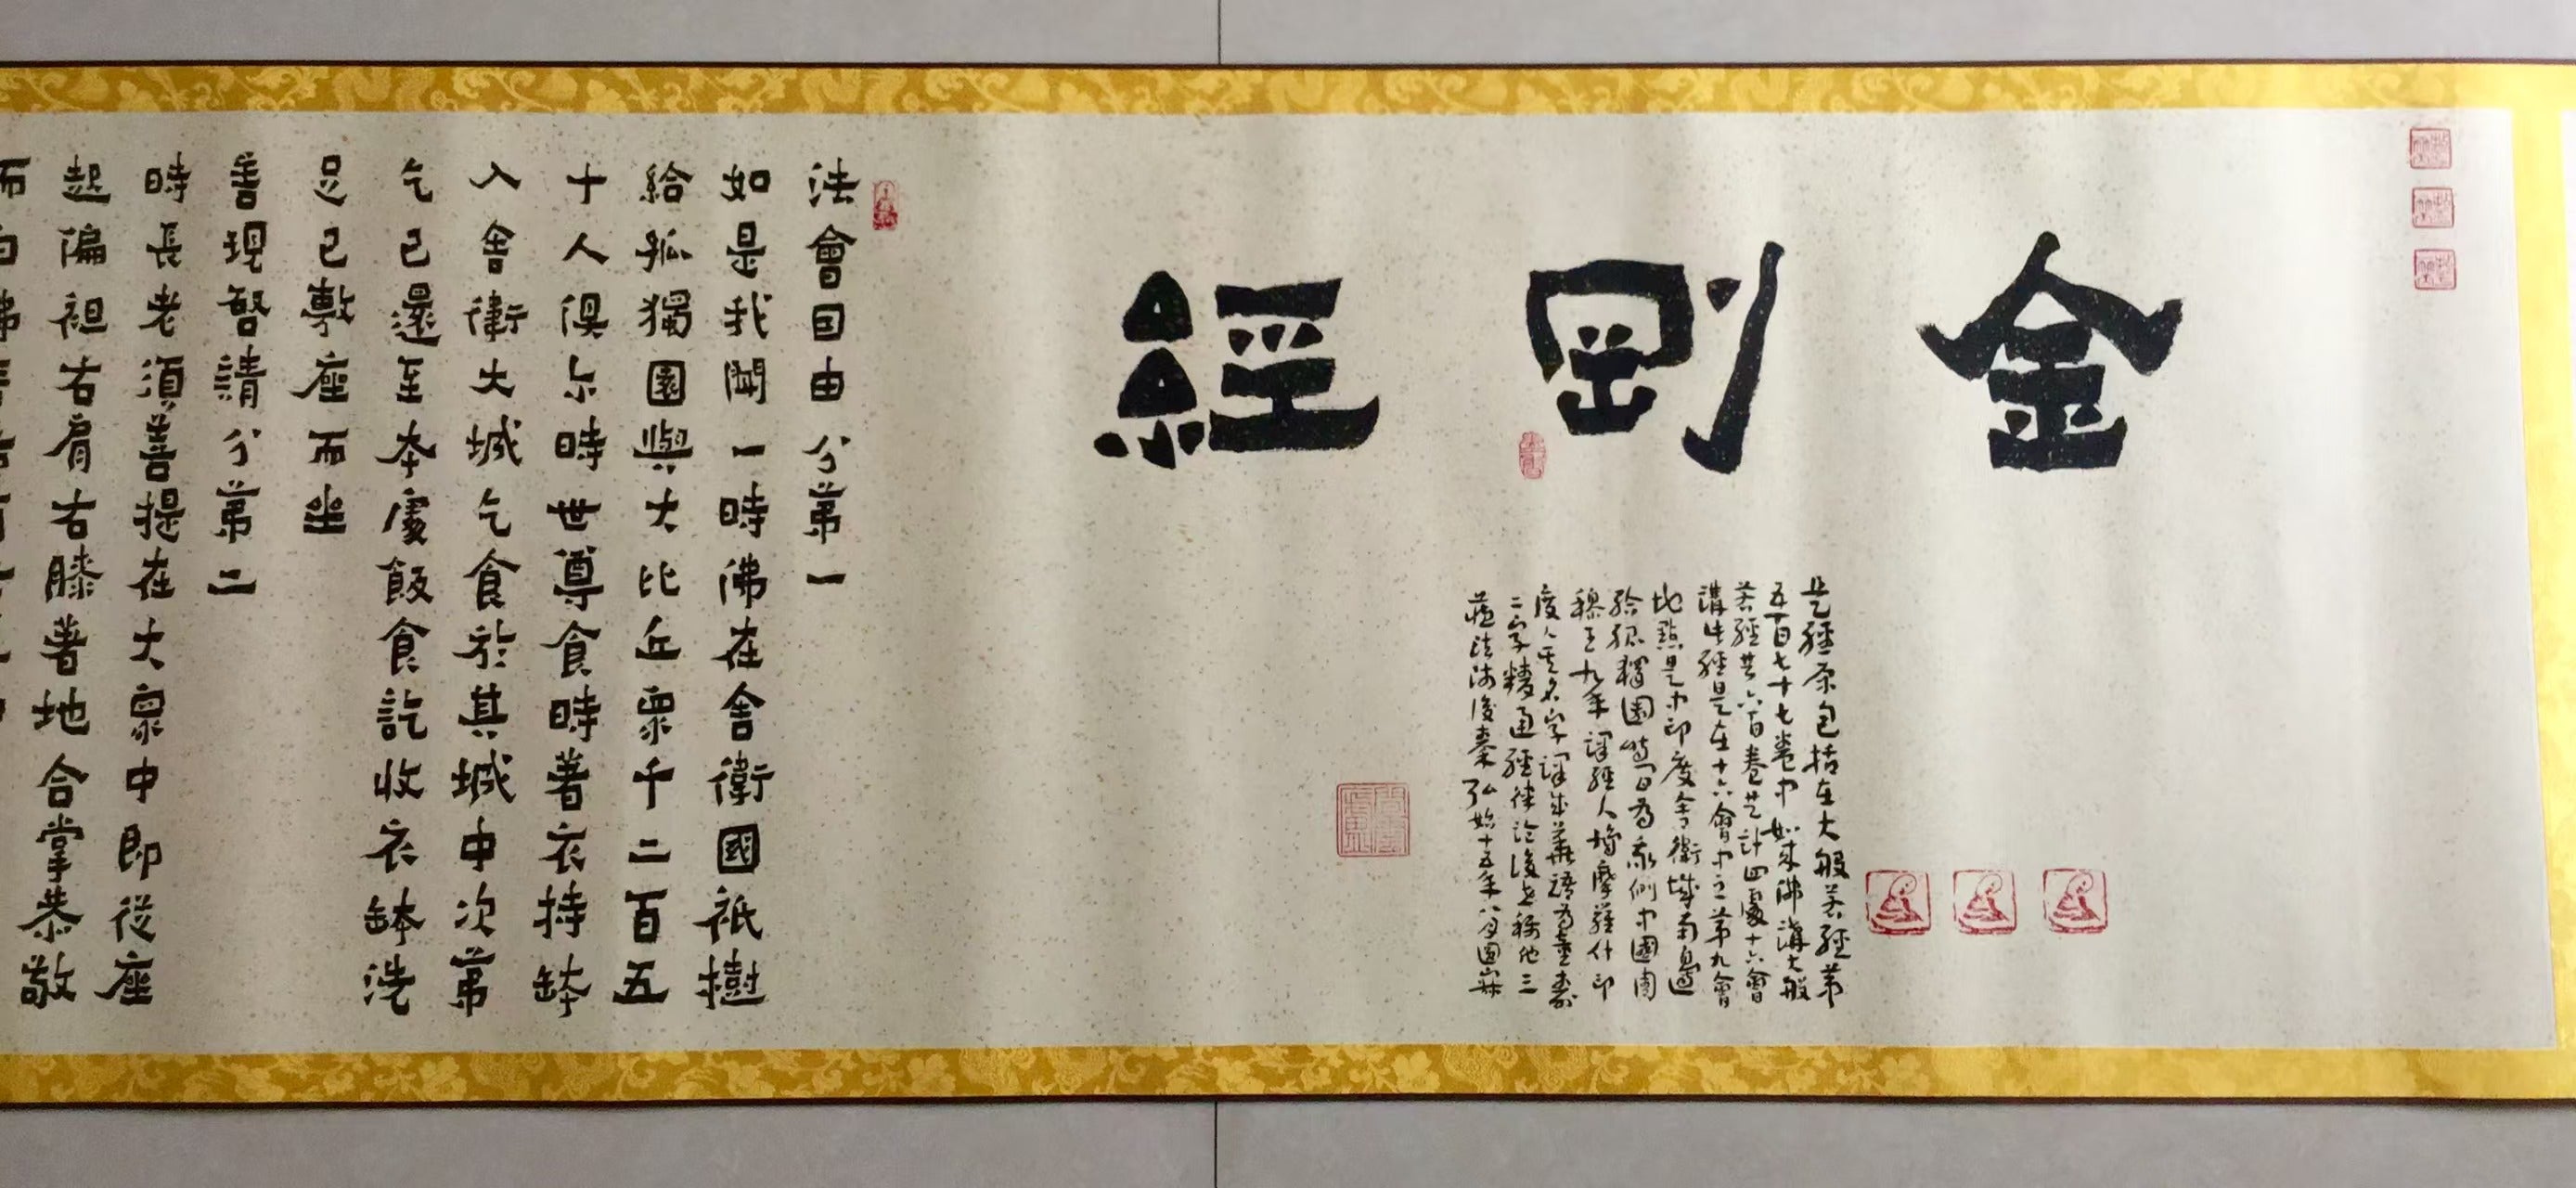 金剛經
是經原包括在大般若經第
五百七十七卷中如來佛講大般
若經共六百卷共計四處十六會
講此經是在十六會中之第九會
地點是中印度舍衛城南邊
給孤獨園時間為我們中國周
穆王九年譯經人鳩摩羅什印
度人其名字譯成華語為童壽
二字精通經律論後世稱他三
藏法師後秦弘始十五年八月圓寂
法會因由分第一
如是我聞一時佛在舍衛國祇樹
給孤獨園與大比丘眾千二百五
十人俱尒時世尊食時著衣持鉢
入舍衛大城乞食於其城中次第
乞已還至本處飯食訖收衣鉢洗
足已敷座而坐
善現啓請分第二
時長老須菩提在大眾中即從座
起偏袒右肩右膝著地合掌恭敬